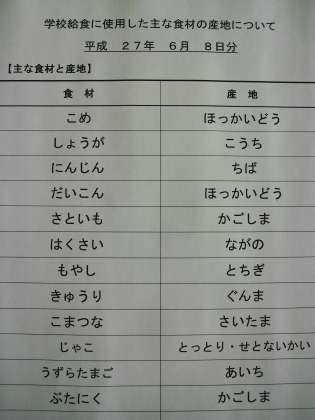 学校給食に使用した主な食材の産地について
平成　２７年　６月　８日分
【主な食材と産地】
食　材　産　地
こめ　ほっかいどう
しょうが　こうち
にんじん　ちば
だいこん　ほっかいどう
さといも　かごしま
はくさい　ながの
もやし　とちぎ
きゅうり　ぐんま
こまつな　さいたま
じゃこ　とっとり・せとないかい
うずらたまご　あいち
ぶたにく　かごしま